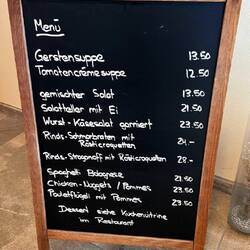 Menü
Gerstensuppe 13.50
Tomatencrèmesuppe 12.50
gemischter Salat 13.50
Salatteller mit Ei 21.50
Wurst-Käsesalat garniert 23.50
Rinds-Schmorbraten mit
Rösticroquetten 24.-
Rinds-Stroganoff mit Rösticroquetten 28.-
Spaghetti Bolognese 21.50
Chicken-Nuggets / Pommes 23.50
Pouletflügel mit Pommes 23.50
Dessert siehe Kuchenvitrine
im Restaurant